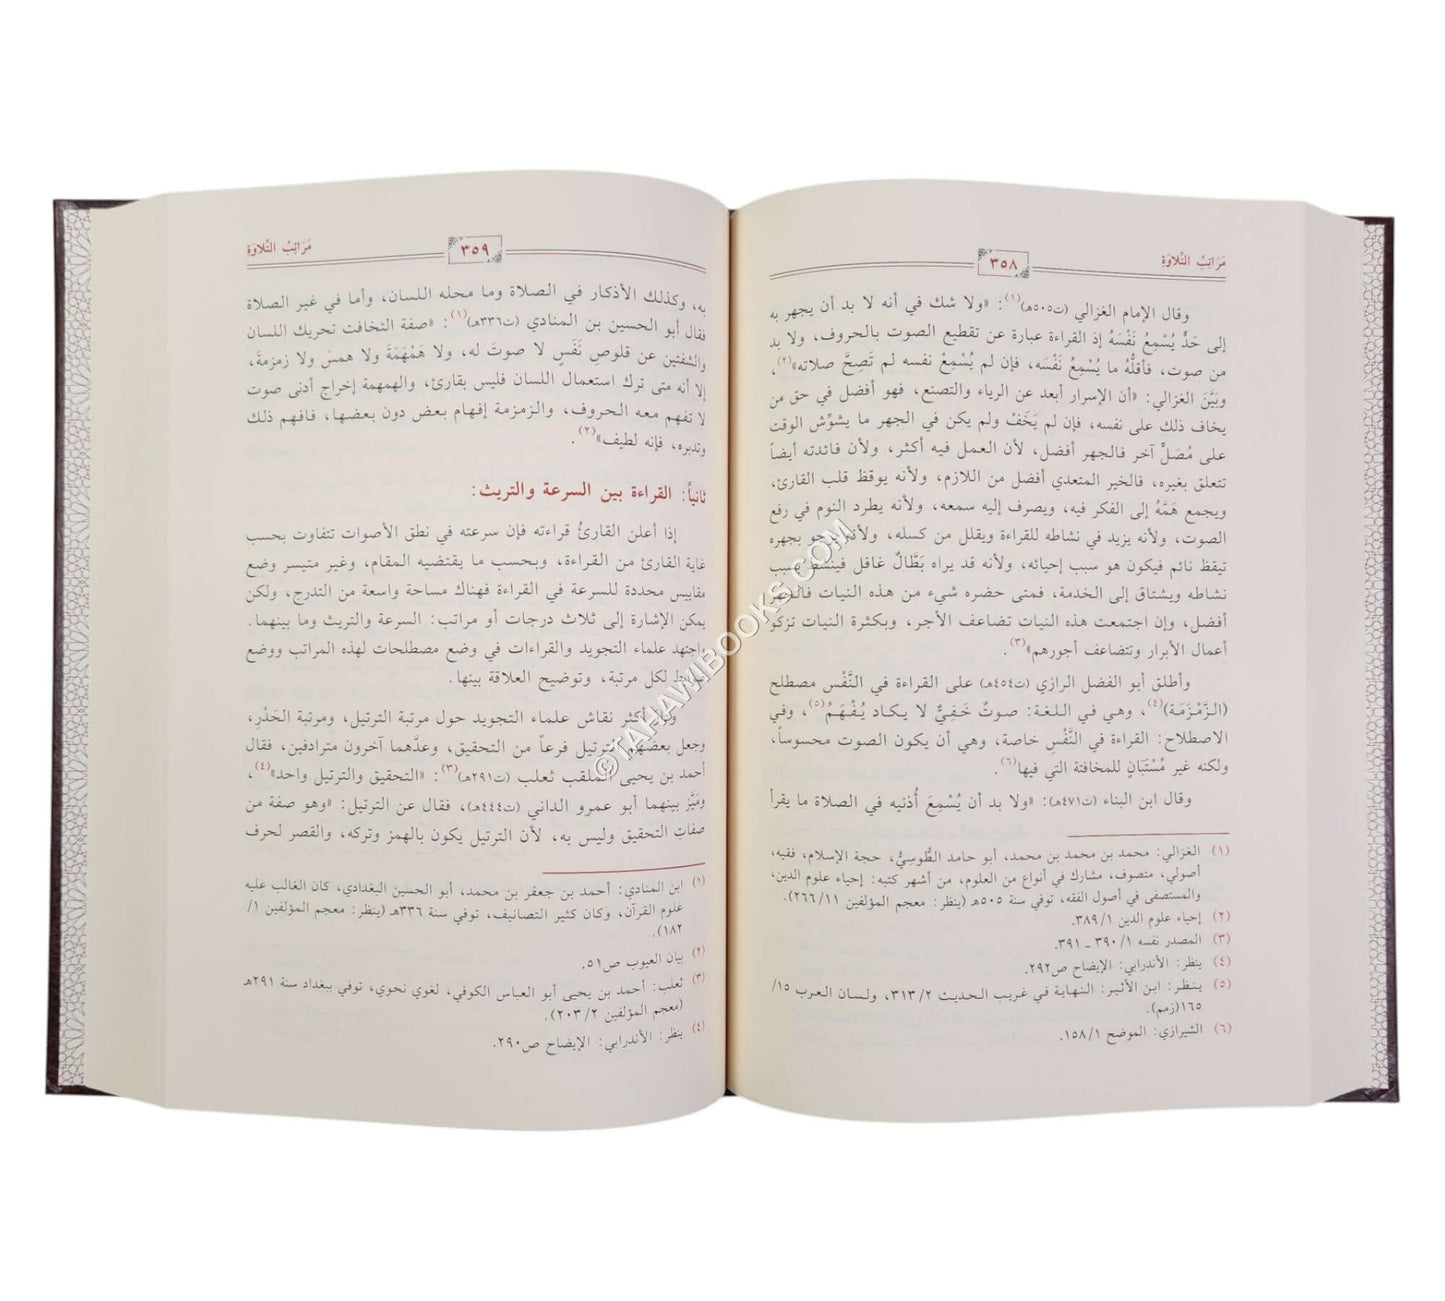 مَرَاتِبُ التِّلاوَةِ
٣٥٨
وقال الإمام الغزالي (ت٥٠٥هـ)(١): «ولا شك في أنه لا بد أن يجهر به
إلى حَدٍّ يُسْمِعُ نَفْسَهُ إذ القراءة عبارة عن تقطيع الصوت بالحروف، ولا بد
من صوت، فأقلُّه ما يُسْمِعُ نَفْسَه، فإن لم يُسْمِعْ نفسه لم تَصِحَّ صلاته»(٢)،
وبيَّنَ الغزالي: «أن الإسرار أبعد عن الرياء والتصنع، فهو أفضل في حق من
يخاف ذلك على نفسه، فإن لم يَخَفْ ولم يكن في الجهر ما يشوِّش الوقت
على مُصَلٍّ آخر فالجهر أفضل، لأن العمل فيه أكثر، ولأن فائدته أيضاً
تتعلق بغيره، فالخير المتعدي أفضل من اللازم، ولأنه يوقظ قلب القارئ،
ويجمع هَمَّهُ إلى الفكر فيه، ويصرف إليه سمعه، ولأنه يطرد النوم في رفع
الصوت، ولأنه يزيد في نشاطه للقراءة ويقلل من كسله، ولأنه يرجو بجهره
تيقظ نائم فيكون هو سبب إحيائه، ولأنه قد يراه بَطَّالٌ غافل فينشط بسبب
نشاطه ويشتاق إلى الخدمة، فمتى حضره شيء من هذه النيات فالجهر
أفضل، وإن اجتمعت هذه النيات تضاعف الأجر، وبكثرة النيات تزكو
أعمال الأبرار وتتضاعف أجورهم»(٣).
وأطلق أبو الفضل الرازي (ت٤٥٤هـ) على القراءة في النَّفْس مصطلح
(الزَّمْزَمَة)(٤)، وهي في اللغة: صوتٌ خَفِيٌّ لا يكاد يُفْهَمُ(٥)، وفي
الاصطلاح: القراءة في النَّفْس خاصة، وهي أن يكون الصوت محسوساً،
ولكنه غير مُسْتَبَانٍ للمخافتة التي فيها(٦).
وقال ابن البناء (ت٤٧١هـ): «ولا بد أن يُسْمِعَ أُذنيه في الصلاة ما يقرأ
(١) الغزالي: محمد بن محمد بن محمد، أبو حامد الطُّوسِيُّ، حجة الإسلام، فقيه،
أصولي، متصوف، مشارك في أنواع من العلوم، من أشهر كتبه: إحياء علوم الدين،
والمستصفى في أصول الفقه، توفي سنة ٥٠٥هـ (ينظر: معجم المؤلفين ٢٦٦/١١).
(٢) إحياء علوم الدين ٣٨٩/١.
(٣) المصدر نفسه ٣٩٠/١ ـ ٣٩١.
(٤) ينظر: الأندرابي: الإيضاح ص٢٩٢.
(٥) ينظر: ابن الأثير: النهاية في غريب الحديث ٣١٣/٢، ولسان العرب ١٥/
١٦٥(زمم).
(٦) الشيرازي: الموضح ١٥٨/١.
مَرَاتِبُ التِّلاوَةِ
٣٥٩
به، وكذلك الأذكار في الصلاة وما محله اللسان، وأما في غير الصلاة
فقال أبو الحسين بن المنادي (ت٣٣٦هـ)(١): «صفة التخافت تحريك اللسان
والشفتين عن قلوصِ نَفَسٍ لا صوتَ له، ولا هَمْهَمَةَ ولا همسَ ولا زمزمةَ،
إلا أنه متى ترك استعمال اللسان فليس بقارئ، والهمهمة إخراج أدنى صوت
لا تفهم معه الحروف، والزمزمة إفهام بعض دون بعضها، فافهم ذلك
وتدبره، فإنه لطيف»(٢).
ثانياً: القراءة بين السرعة والتريث:
إذا أعلن القارئُ قراءته فإن سرعته في نطق الأصوات تتفاوت بحسب
غاية القارئ من القراءة، وبحسب ما يقتضيه المقام، وغير متيسر وضع
مقاييس محددة للسرعة في القراءة فهناك مساحة واسعة من التدرج، ولكن
يمكن الإشارة إلى ثلاث درجات أو مراتب: السرعة والتريث وما بينهما.
واجتهد علماء التجويد والقراءات في وضع مصطلحات لهذه المراتب ووضع
لكل مرتبة، وتوضيح العلاقة بينها.
أكثر نقاش علماء التجويد حول مرتبة الترتيل، ومرتبة الحَدْرِ،
وجعل بعضهم الترتيل فرعاً من التحقيق، وعدَّهما آخرون مترادفين، فقال
أحمد بن يحيى الملقب ثعلب (ت٢٩١هـ)(٣): «التحقيق والترتيل واحد»(٤)،
ومَيَّز بينهما أبو عمرو الداني (ت٤٤٤هـ)، فقال عن الترتيل: «وهو صفة من
صفات التحقيق وليس به، لأن الترتيل يكون بالهمز وتركه، والقصر لحرف
(١) ابن المنادي: أحمد بن جعفر بن محمد، أبو الحسين البغدادي، كان الغالب عليه
علوم القرآن، وكان كثير التصانيف، توفي سنة ٣٣٦هـ (ينظر: معجم المؤلفين ١/
١٨٢).
(٢) بيان العيوب ص٥١.
(٣) ثعلب: أحمد بن يحيى أبو العباس الكوفي، لغوي نحوي، توفي ببغداد سنة ٢٩١هـ
(معجم المؤلفين ٢٠٣/٢).
(٤) ينظر: الأندرابي: الإيضاح ص٢٩٠.
©TAHAWIBOOKS.COM